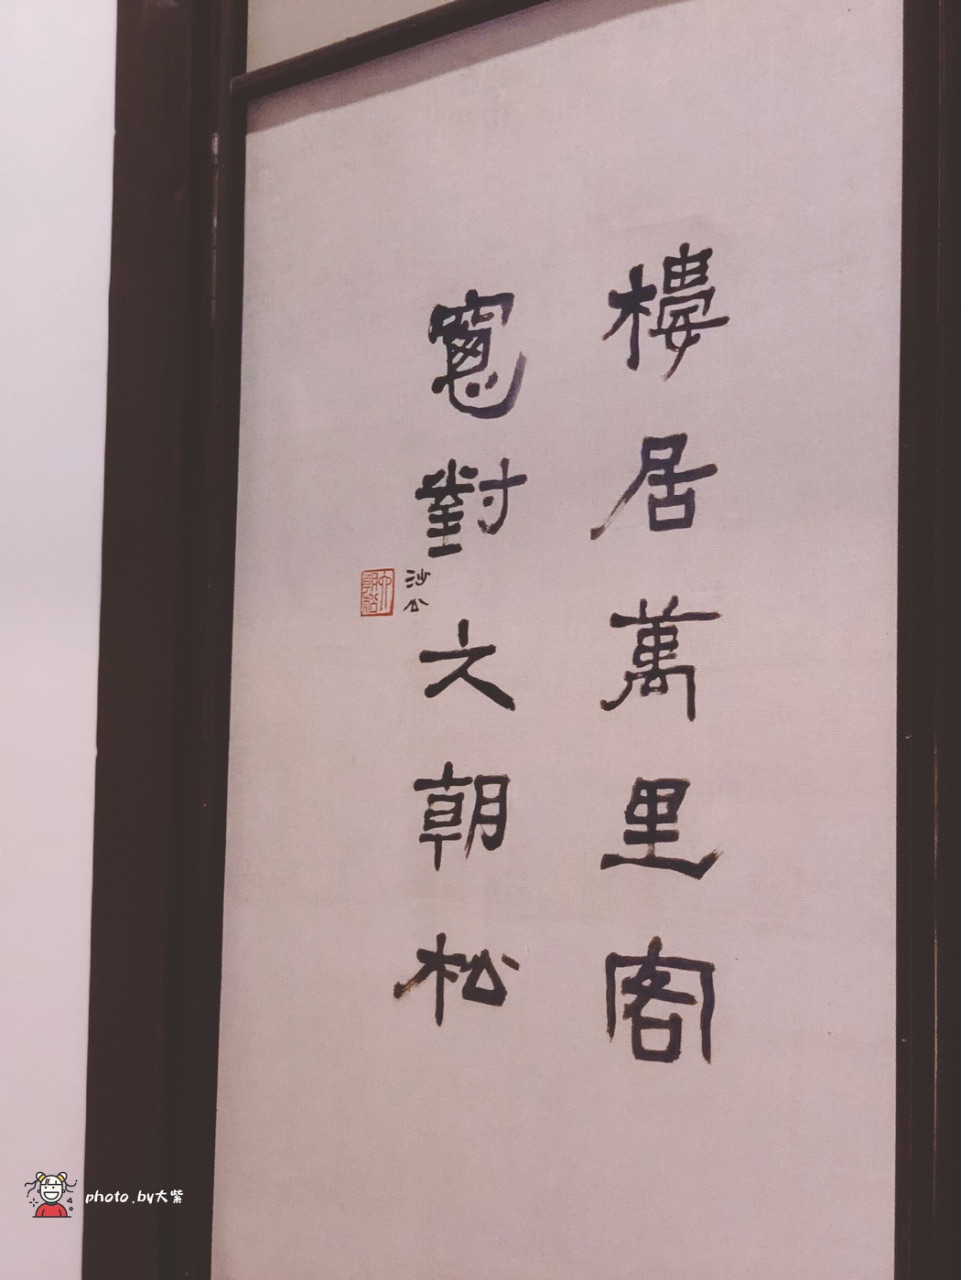 樓居萬里客
窻對六朝松
沙公
photo.by大紫